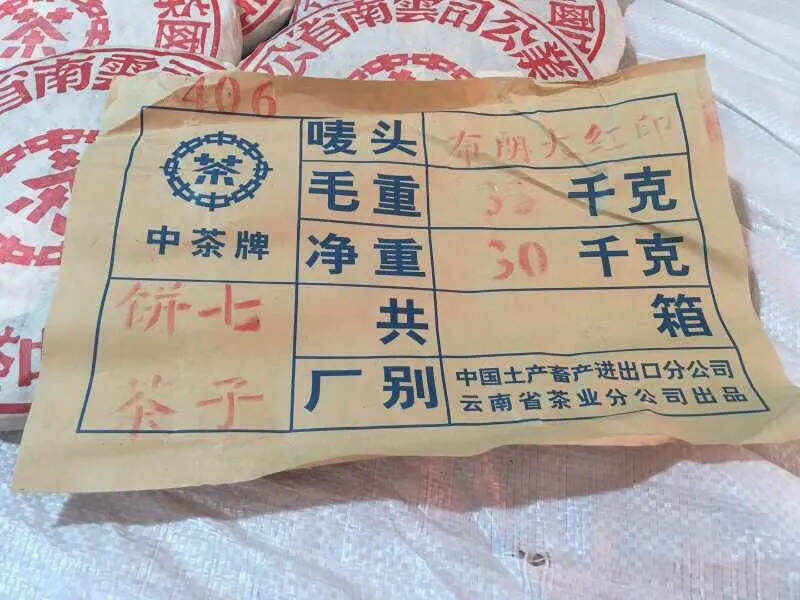 茶
國
云省南雲司公業
國
省南雲司公
茶
406
茶
中茶牌
唛头 布朗大红印
毛重 千克
净重 30 千克
饼七
茶子
共 箱
厂别 中国土产畜产进出口分公司
云南省茶业分公司出品